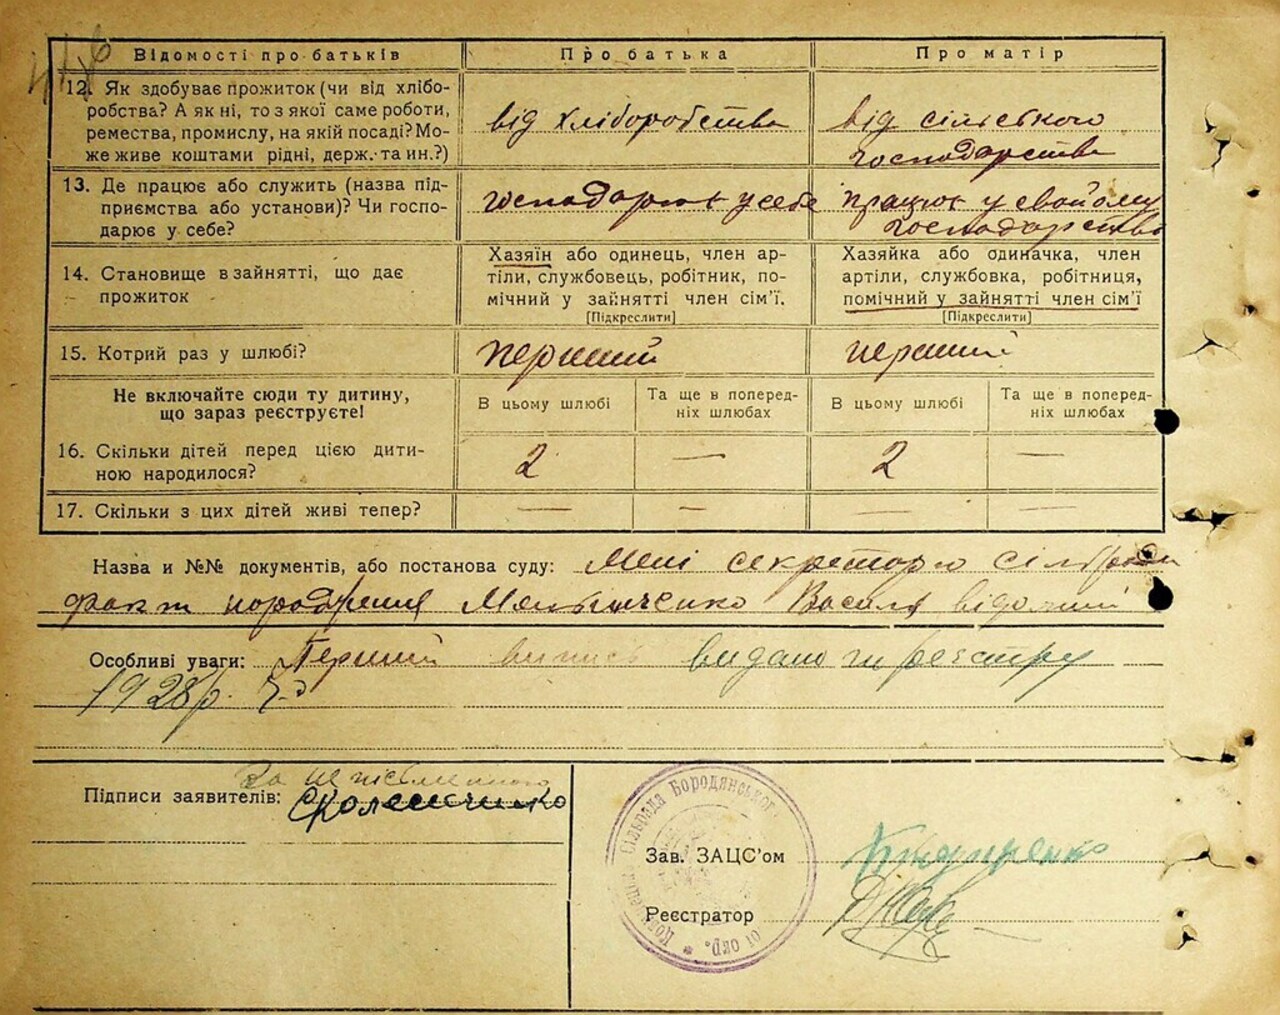 Відомості про батьків
Про батька
Про матір
12. Як здобуває прожиток (чи від хлібо-
робства? А як ні, то з якої саме роботи,
ремества, промислу, на якій посаді? Мо-
же живе коштами рідні, держ. та ин.?)
від хліборобства
від сільського
господарства
13. Де працює або служить (назва під-
приємства або установи)? Чи госпо-
дарює у себе?
господарює у себе
працює у свойому
господарстві
14. Становище в зайнятті, що дає
прожиток
Хазяїн або одинець, член ар-
тіли, службовець, робітник, по-
мічний у зайнятті член сім'ї.
[Підкреслити]
Хазяйка або одиначка, член
артіли, службовка, робітниця,
помічний у зайнятті член сім'ї
[Підкреслити]
15. Котрий раз у шлюбі?
перший
перший
Не включайте сюди ту дитину,
що зараз реєструєте!
В цьому шлюбі
Та ще в поперед-
ніх шлюбах
В цьому шлюбі
Та ще в поперед-
ніх шлюбах
16. Скільки дітей перед цією дити-
ною народилося?
2 —
2 —
17. Скільки з цих дітей живі тепер?
— — — —
Назва и №№ документів, або постанова суду: Мені секреторю сільради
факт породження Василя відомий
Особливі уваги: Перший випись видано
1928 р.
Підписи заявителів:
за неписьменного
Сільрада Бородянського
Зав. ЗАЦС'ом
Реєстратор